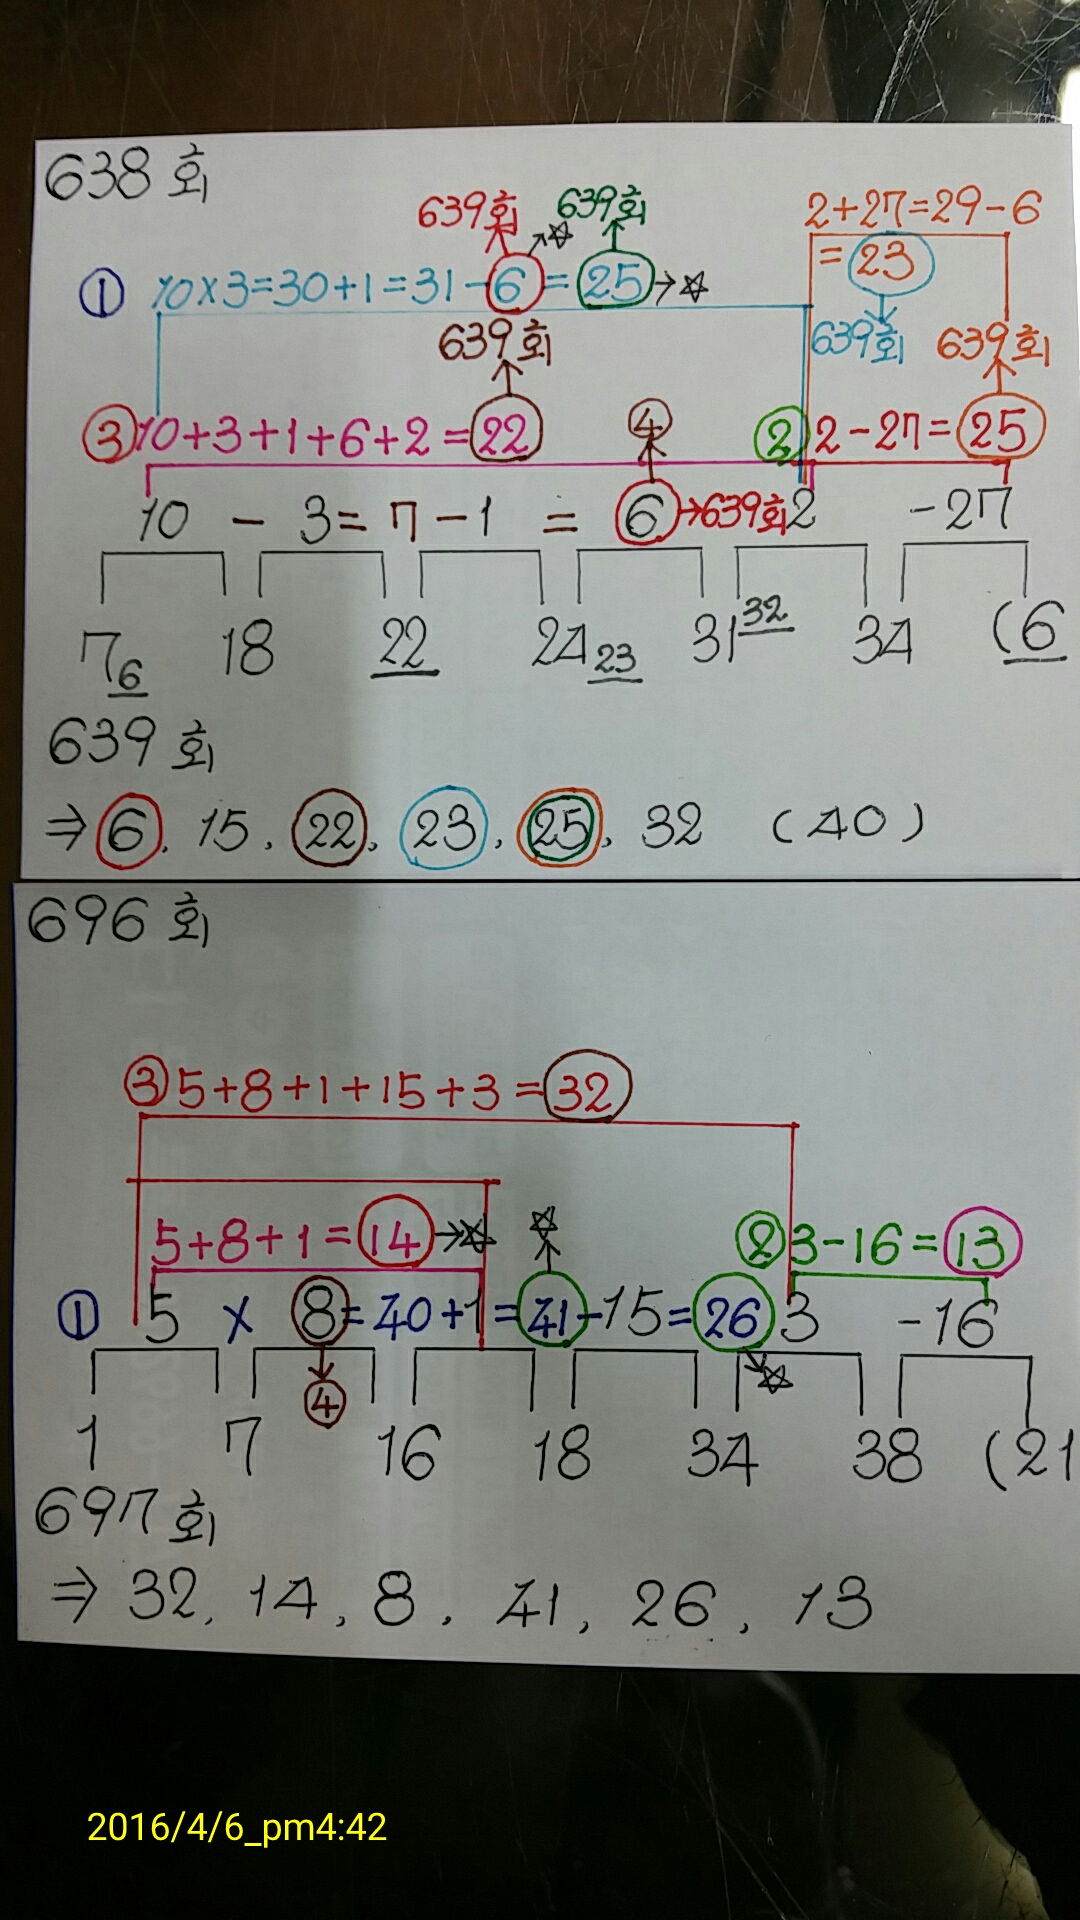 638회
639회 639회 2+27=29-6
① 10×3=30+1=31-6=25→☆ =23
639회 639회 639회
③ 10+3+1+6+2=22 ④ ② 2-27=25
10 - 3=7-1 = 6→639회 2 -27
7 6 18 22 24 23 31 32 34 (6
639회
⇒ 6, 15, 22, 23, 25, 32 (40)
696회
③ 5+8+1+15+3=32
5+8+1=14→☆ ☆ ② 3-16=13
① 5 × 8=40+1=41-15=26 3 -16
④ ☆
1 7 16 18 34 38 (21
697회
⇒ 32, 14, 8, 41, 26, 13
2016/4/6_pm4:42